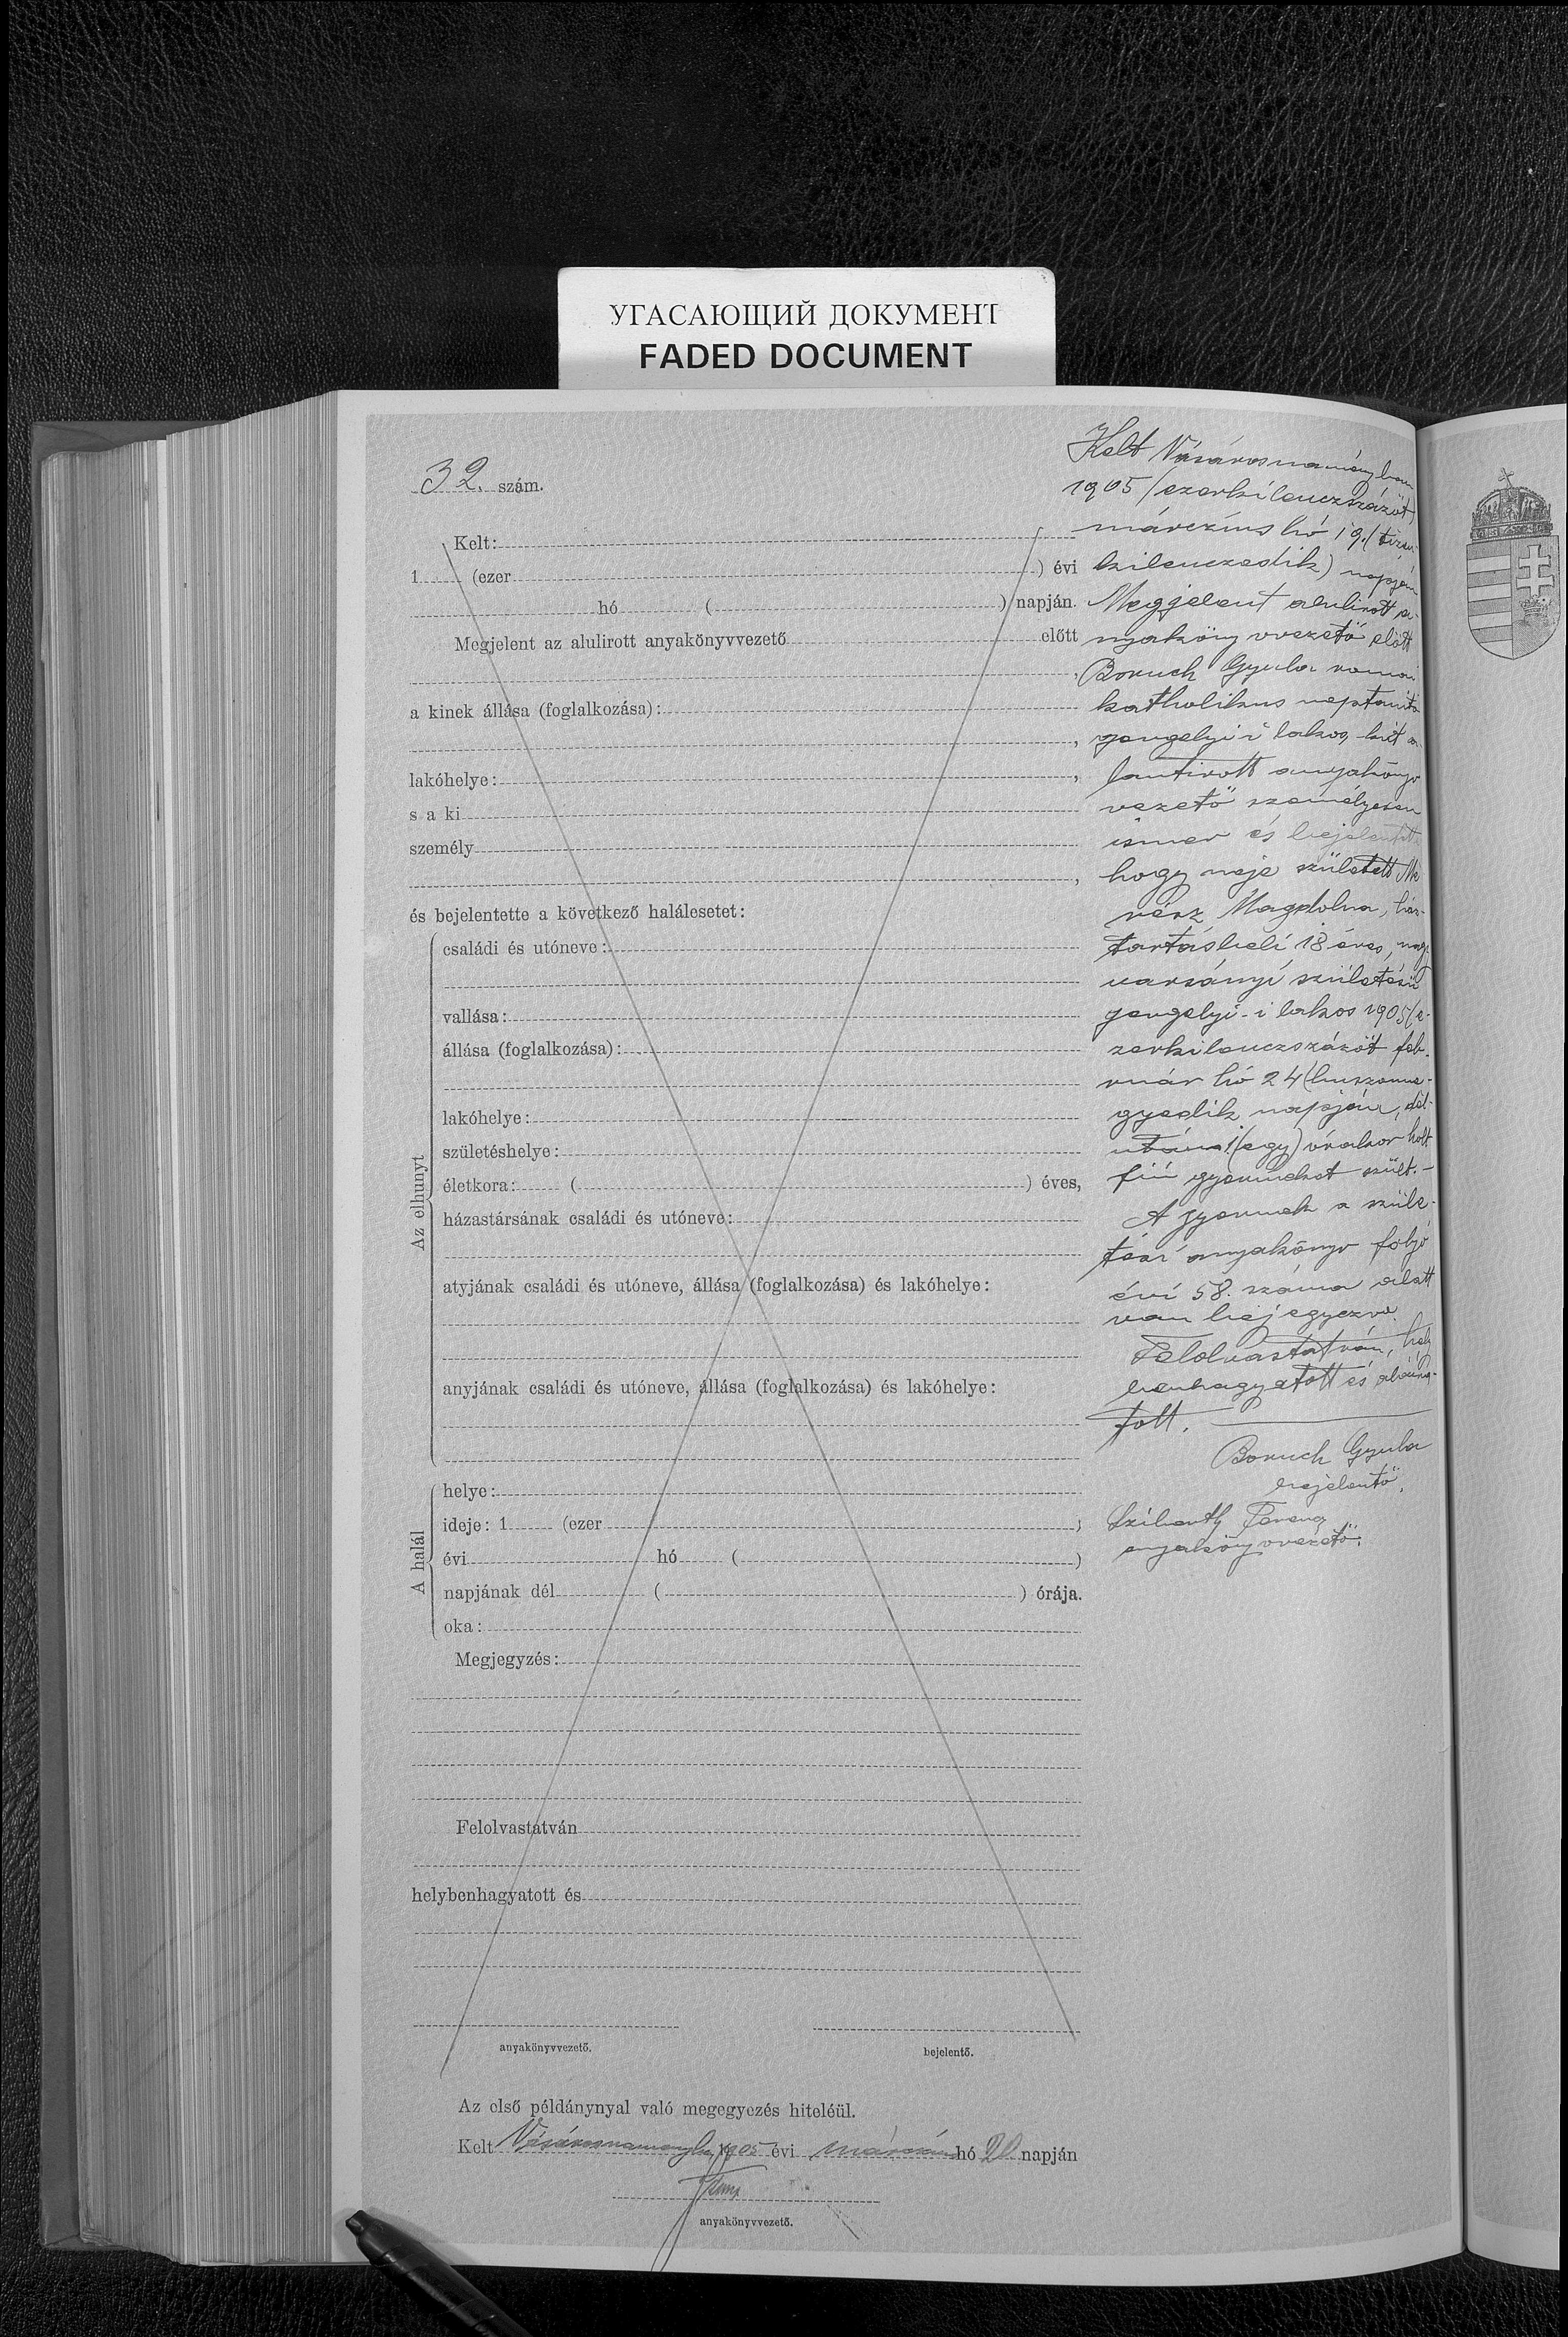 УГАСАЮЩИЙ ДОКУМЕНТ
FADED DOCUMENT
32. szám.
Kelt:
1 (ezer ) évi
hó ( ) napján.
Megjelent az alulirott anyakönyvvezető előtt
,
a kinek állása (foglalkozása):
,
lakóhelye: ,
s a ki
személy
,
és bejelentette a következő halálesetet:
Az elhunyt
családi és utóneve:
vallása:
állása (foglalkozása):
lakóhelye:
születéshelye:
életkora: ( ) éves,
házastársának családi és utóneve:
atyjának családi és utóneve, állása (foglalkozása) és lakóhelye:
anyjának családi és utóneve, állása (foglalkozása) és lakóhelye:
A halál
helye:
ideje: 1 (ezer )
évi hó ( )
napjának dél ( ) órája.
oka:
Megjegyzés:
Felolvastatván
helybenhagyatott és
anyakönyvvezető. bejelentő.
Kelt Vásárosnaményban
1905 (ezerkilenczszázöt)
márczius hó 19. (tizen-
kilenczedik) napján
Megjelent alulirott a-
nyakönyvvezető előtt
Boruch Gyula római
katholikus néptanitó
gergelyi-i lakos, kit a-
lantirott anyakönyv
vezető személyesen
ismer és bejelentette
hogy neje született Mé
rész Magdolna, ház-
tartásbeli 18 éves, nagy-
varsányi születésü
gergelyi-i lakos 1905 (e-
zerkilenczszázöt feb-
ruár hó 24 (huszonne-
gyedik napján, dél-
után 1 (egy) órakor holt
fiú gyermeket szült. -
A gyermek a szüle-
tési anyakönyv folyó
évi 58. száma alatt
van bejegyezve.
Felolvastatván, hely
benhagyatott és aláira-
tott.
Boruch Gyula
bejelentő.
Ferencz
anyakönyvvezető.
Az első példánynyal való megegyezés hiteléül.
Kelt Vásárosnaményban 1905 évi márczius hó 20 napján
anyakönyvvezető.